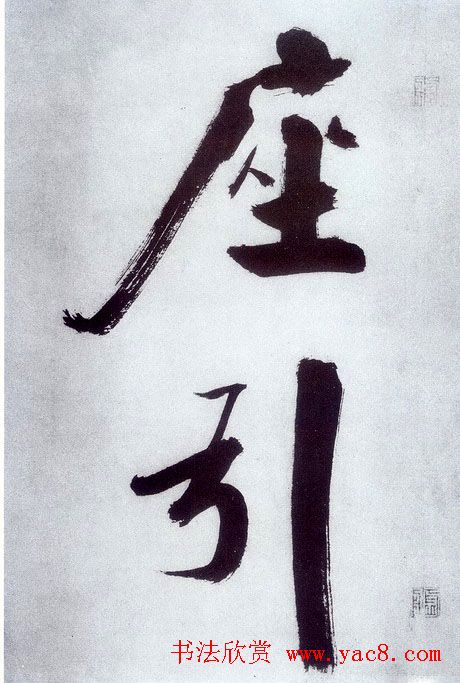 座
引
书法欣赏 www.yac8.com